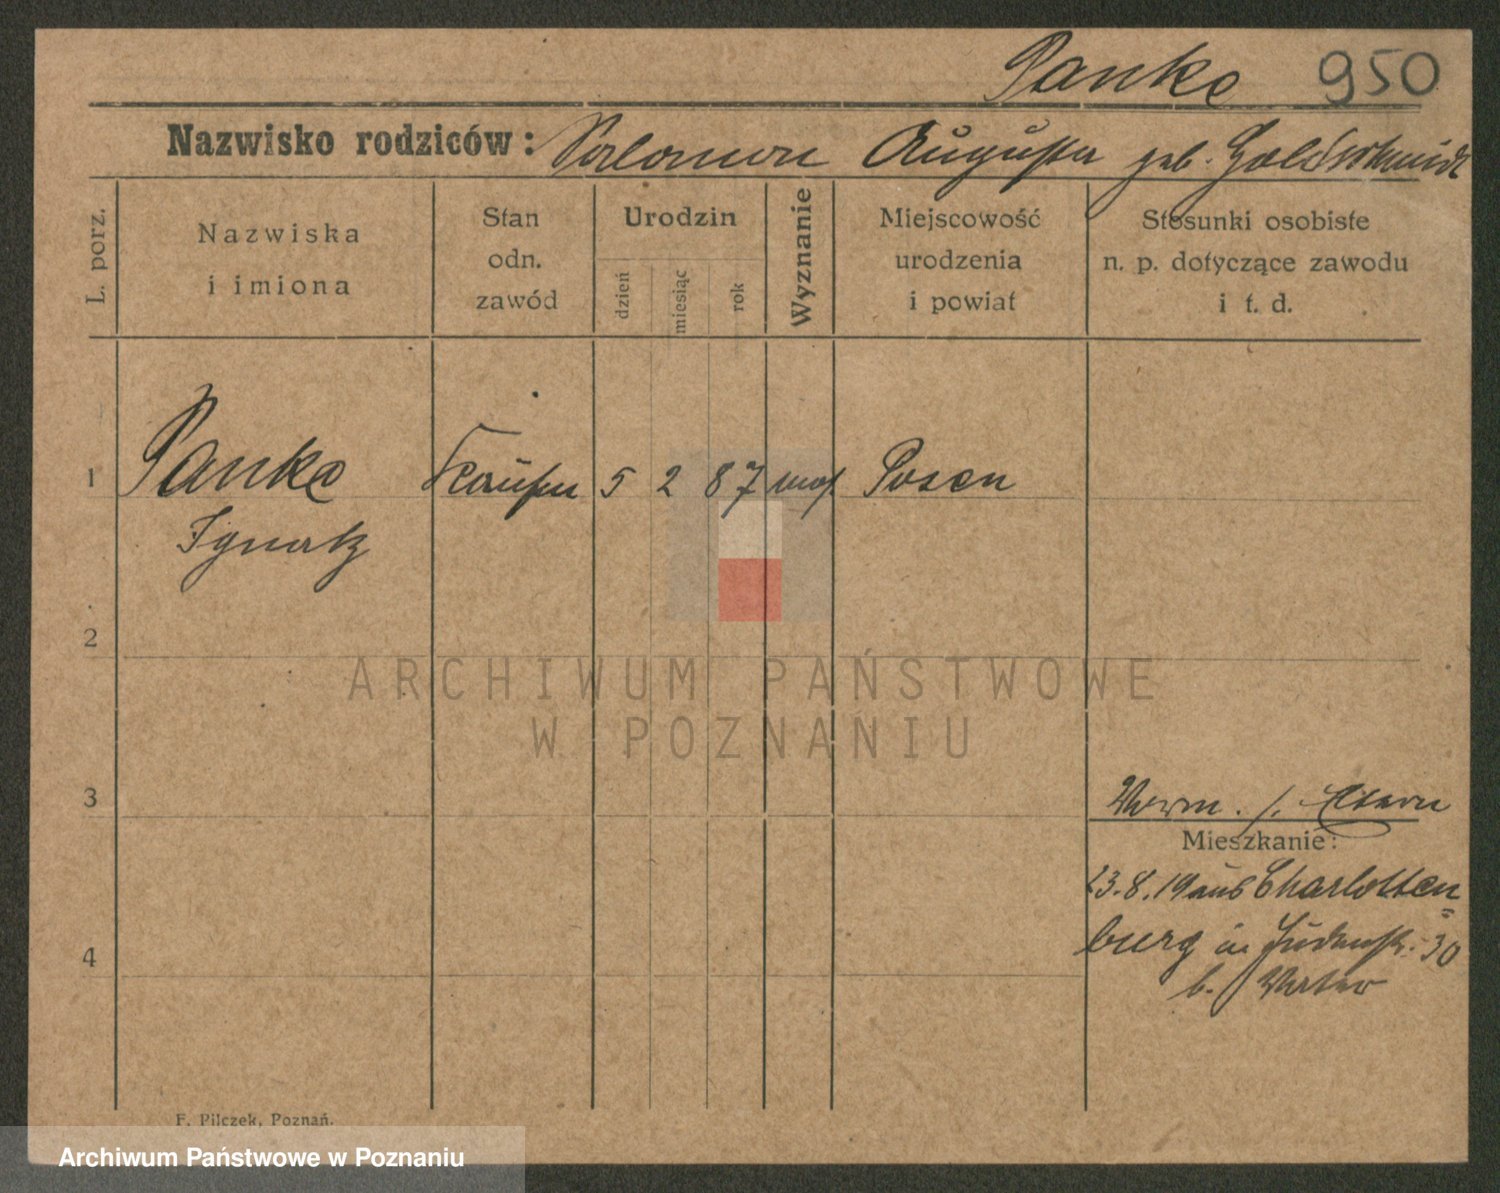 Panke 950
Nazwisko rodziców: Salomon Augusta geb. Goldschmidt
L. porz.
Nazwiska
i imiona
Stan
odn.
zawód
Urodzin
dzień
miesiąc
rok
Wyznanie
Miejscowość
urodzenia
i powiat
Stosunki osobiste
n. p. dotyczące zawodu
i t. d.
1 Panke Kaufm 5 2 87 mos Posen
Ignatz
2
ARCHIWUM PAŃSTWOWE
W POZNANIU
3
Eltern
Mieszkanie:
23.8.19 aus Charlotten
burg in Judenstr. 30
4
b. Vater
F. Pilczek, Poznań.
Archiwum Państwowe w Poznaniu